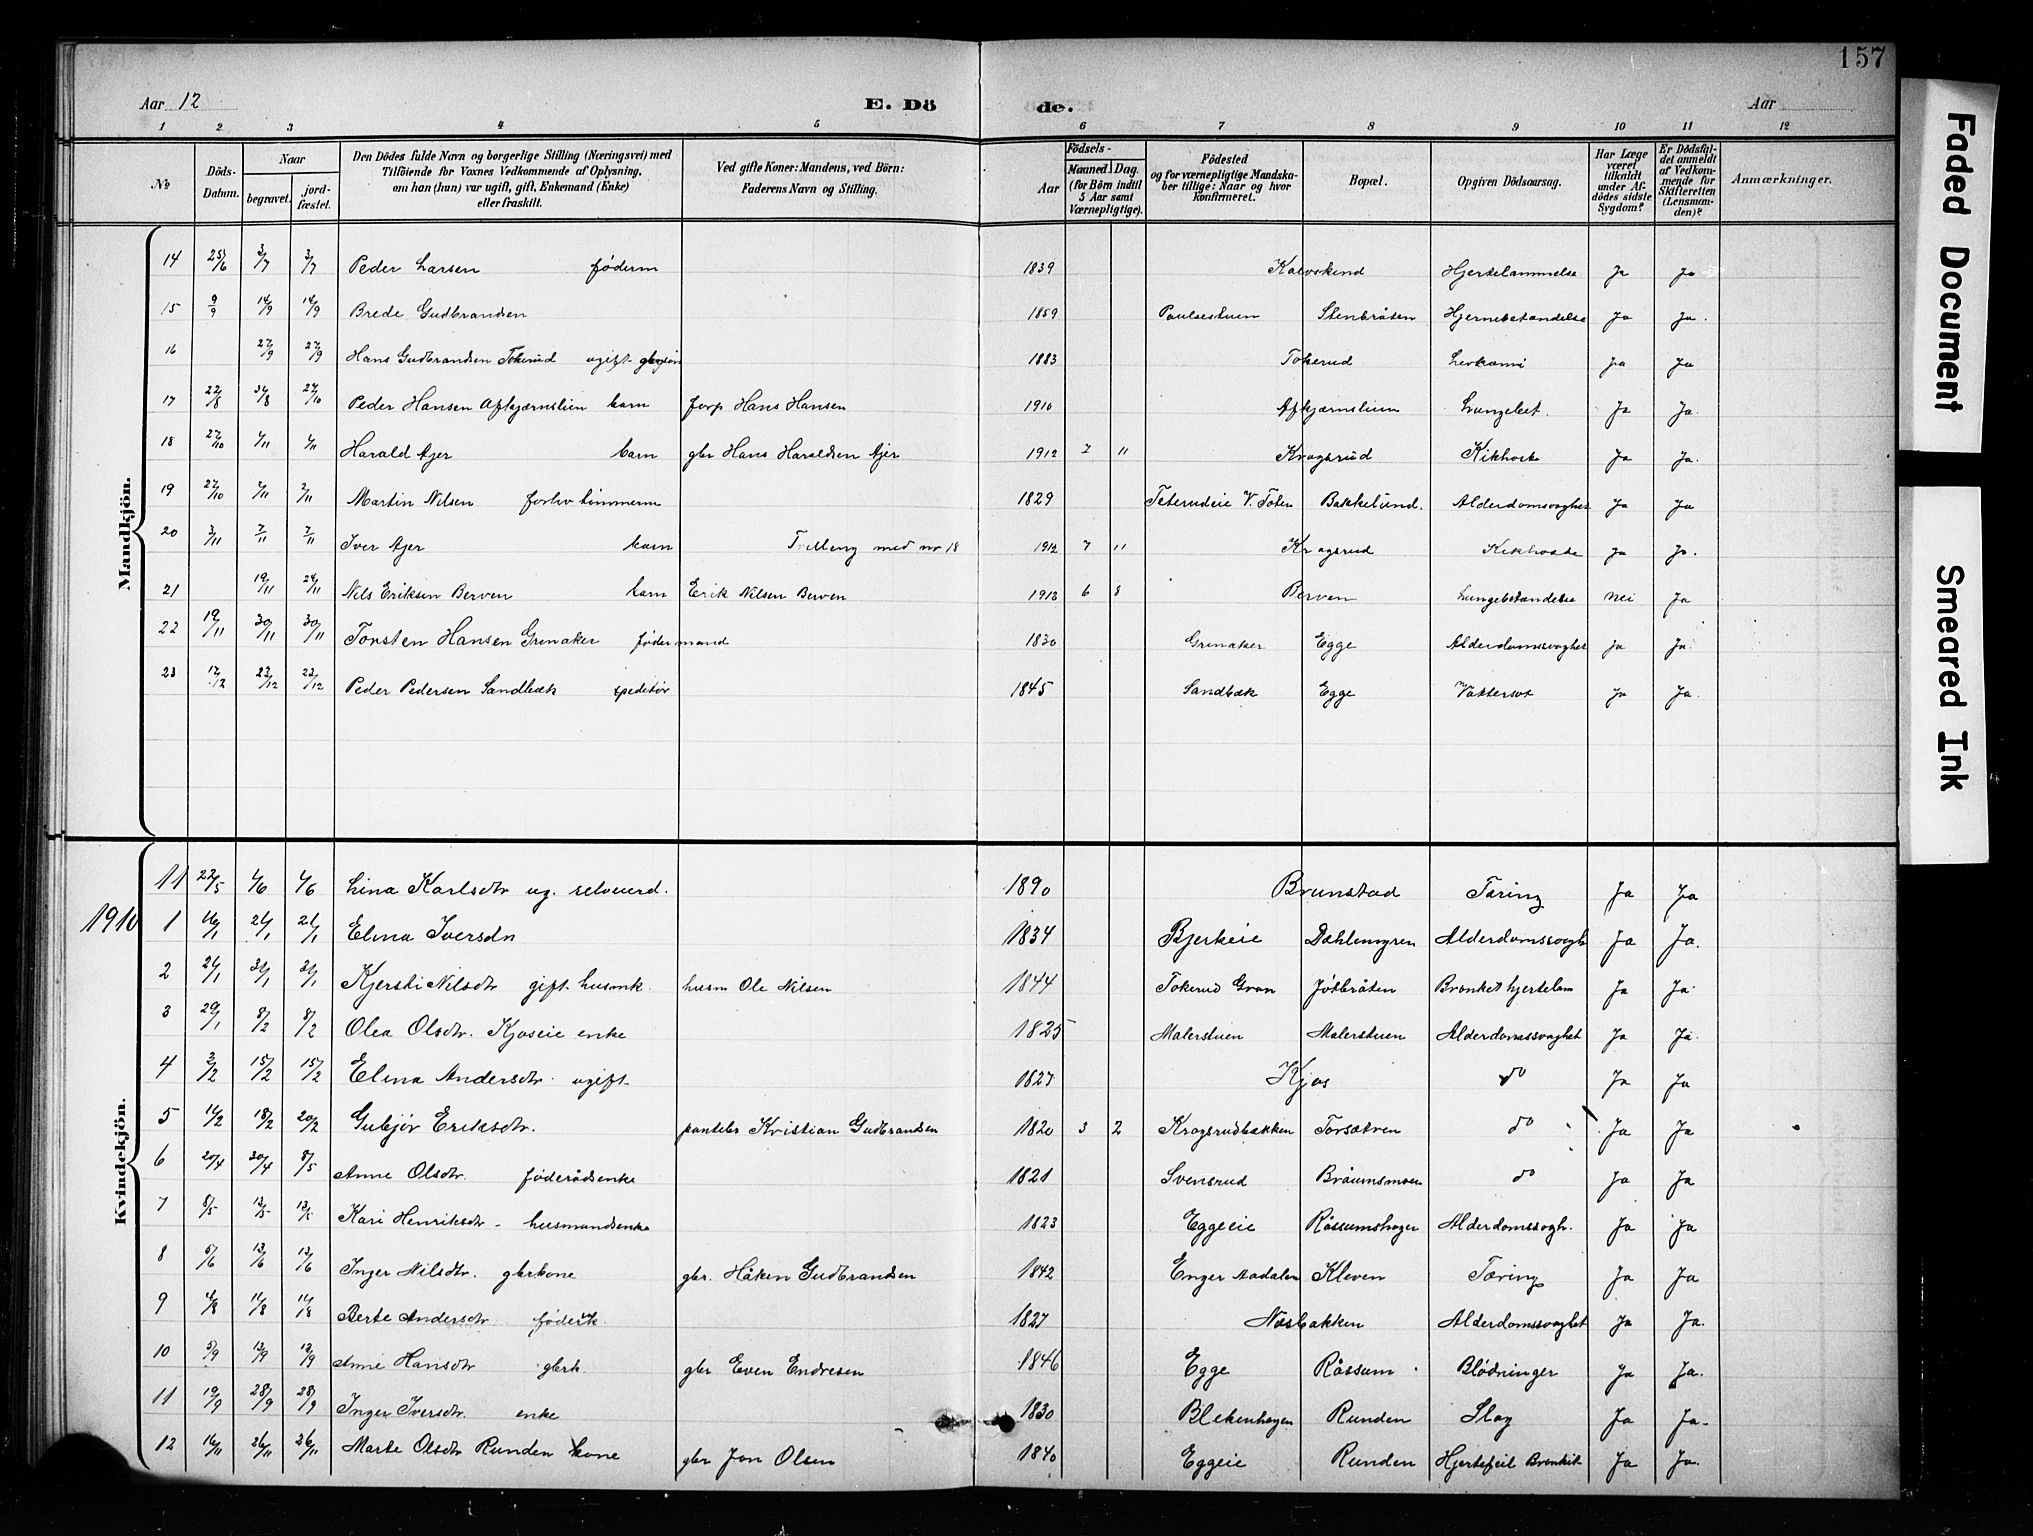 157
Aar 12 E. Dö de. Aar
1 2 3 4 5 6 7 8 9 10 11 12
No Döds-Datum. Naar begravet. jord-fæstet. Den Dödes fulde Navn og borgerlige Stilling (Næringsvei) med Tilföiende for Voxnes Vedkommende af Oplysning, om han (hun) var ugift, gift, Enkemand (Enke) eller fraskilt. Ved gifte Koner: Mandens, ved Börn: Faderens Navn og Stilling. Födsels- Aar Maaned. Dag. (for Börn indtil 5 Aar samt Værnepligtige). Födested og for værnepligtige Mandska-ber tillige: Naar og hvor konfirmeret. Bopæl. Opgiven Dödsaarsag. Har Læge været tilkaldt under Af-dödes sidste Sygdom? Er Dödsfal-det anmeldt af Vedkom-mende for Skifteretten (Lensman-den)? Anmærkninger.
Mandkjön.
14 25/6 3/7 3/7 Peder Larsen føderm 1839 Kalvskind Hjertelammelse Ja Ja
15 9/9 14/9 14/9 Brede Gudbrandsen 1859 Paulsestuen Stenbråten Hjernebetændelse Ja Ja.
16 27/9 27/9 Hans Gudbrandsen Tokerud ugift 1883 Tokerud Levkæmi Ja Ja
17 22/8 31/8 27/10 Peder Hansen Afkjærnslien barn forp Hans Hansen 1910 Afkjærnslien Lungebet. Ja Ja.
18 27/10 4/11 4/11 Harald Ajer barn gbr Hans Haraldsen Ajer 1912 7 11 Kragsrud Kikhoste Ja Ja.
19 27/10 2/11 2/11 Martin Nilsen forhv tømmerm 1829 Teterudeie V. Toten Bakkelund. Alderdomsvaghet Ja Ja
20 3/11 7/11 7/11 Iver Ajer barn Tvilling med nr 18 1912 7 11 Kragsrud Kikhoste Ja Ja.
21 19/11 24/11 Nils Eriksen Berven barn Erik Nilsen Berven 1912 6 8 Berven Lungebetændelse Nei Ja
22 19/11 30/11 30/11 Torsten Hansen Grinaker fødermand 1830 Grinaker Egge Alderdomssvaghet Ja Ja.
23 17/12 23/12 23/12 Peder Pedersen Sandbæk speditør 1845 Sandbæk Egge Vattersot Ja Ja.
Kvindekjön.
11 27/5 4/6 4/6 Lina Karlsdtr ug. selverd. 1890 Brunstad Tæring Ja Ja
1910 1 16/1 21/1 21/1 Elina Iversdn 1834 Bjerkeie Dæhlemyren Alderdomssvagh Ja Ja.
2 21/1 31/1 31/1 Kjersti Nilsdtr gift husmk. husm Ole Nilsen 1844 Tokerud Gran Jøtbråten Bronket hjertelam Ja Ja
3 29/1 8/2 8/2 Olea Olsdtr. Kjoseie enke 1825 Malerstuen Malerstuen Alderdomssvaghet Ja Ja.
4 3/2 15/2 15/2 Elina Andersdtr. ugift 1827 Kjos do Ja Ja
5 14/2 18/2 20/2 Gubjør Eriksdtr. panteler Kristian Gudbrandsen 1820 3 2 Kragsrudbakken Torsætren do Ja Ja
6 20/4 30/4 8/5 Anne Olsdtr. føderådsenke 1821 Svensrud Bråumsmoen do Ja Ja
7 8/5 13/5 13/5 Kari Henriksdtr - husmandsenke 1823 Eggeeie Råssumshagen Alderdomssvagh. Ja Ja
8 5/6 13/6 13/6 Inger Nilsdtr. gbrkone gbr. Håken Gudbrandsen 1842 Enger Aadalen Kleven Tæring Ja Ja
9 4/8 11/8 11/8 Berte Andersdtr føderk. 1827 Næsbakken Alderdomssvaghet Ja Ja.
10 5/9 13/9 13/9 Anne Hansdtr gbrk. gbr Even Endresen 1846 Egge Råssum Blødninger Ja Ja.
11 19/9 28/9 28/9 Inger Iversdtr. enke 1830 Blekenhagen Runden Slag Ja Ja.
12 16/11 26/11 26/11 Marte Olsdtr Runden kone gbr Jon Olsen 1840 Eggeie Runden Hjertefeil Bronkit Ja Ja.
Faded Document
Smeared Ink